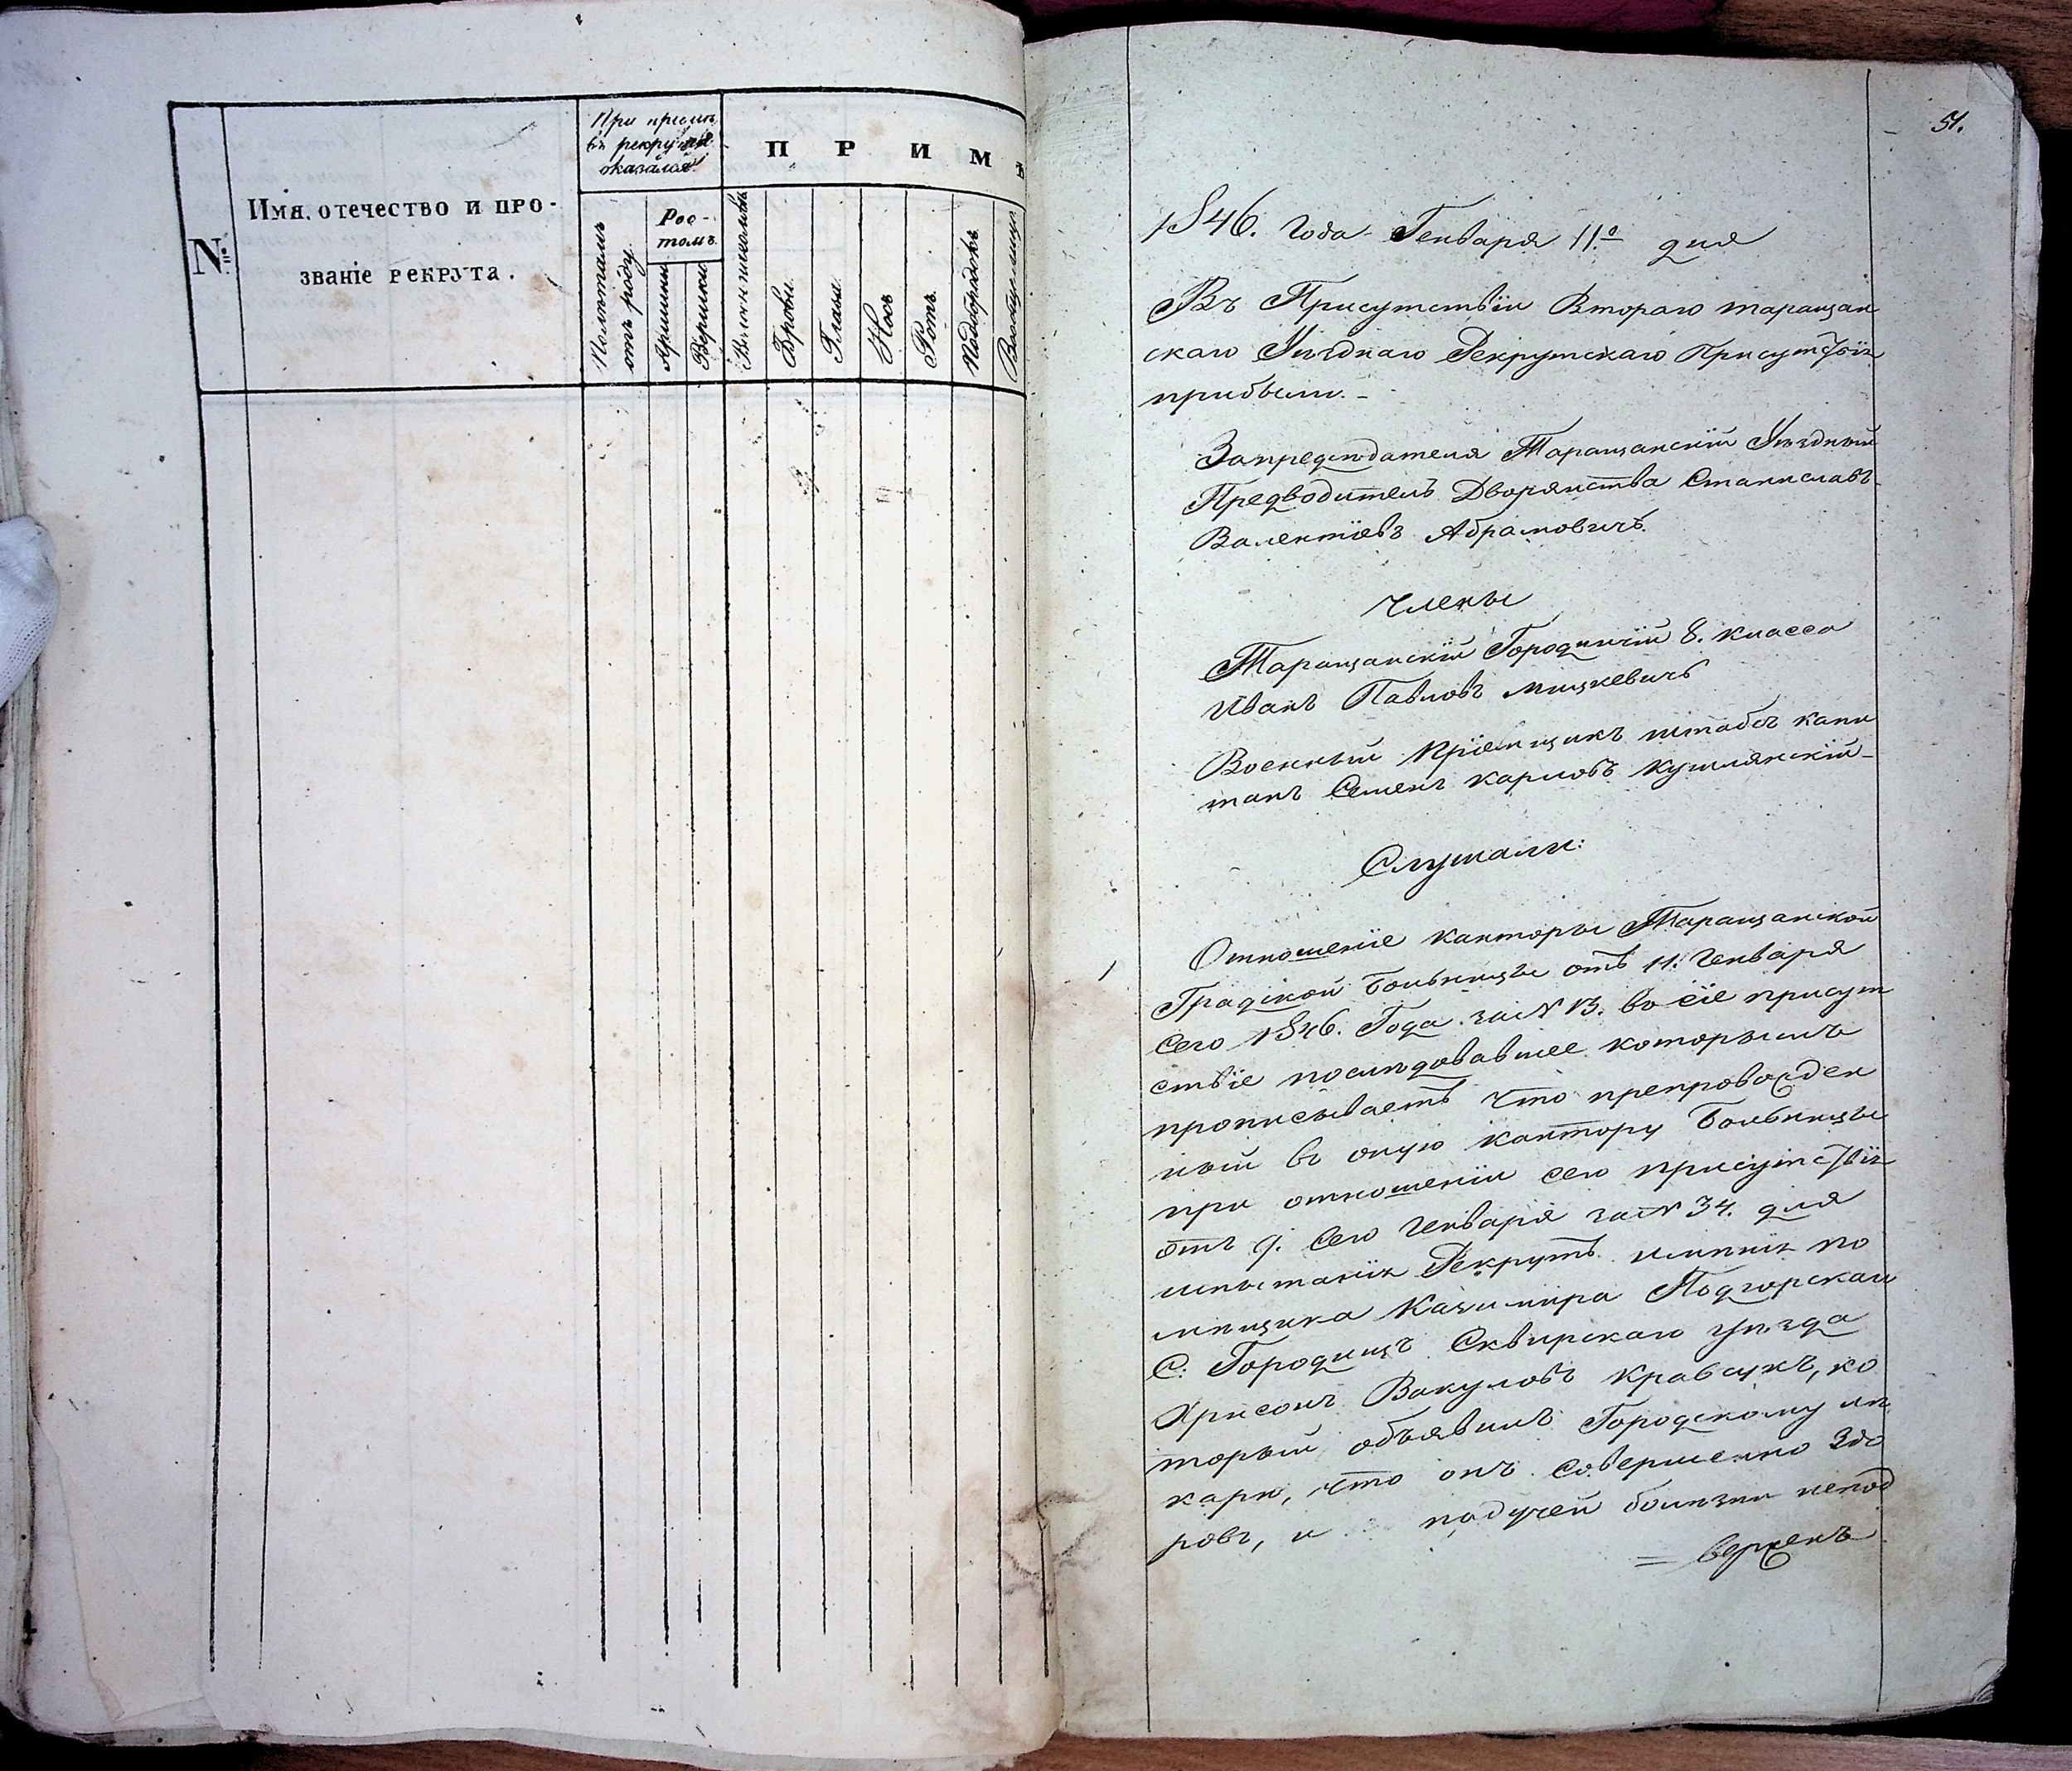 №
Имя, отечество и про-
званіе рекрута.
При пріемѣ
въ рекруты
оказался
Полѣтамъ
отъ роду
Рос-
томъ
Аршинъ
Вершки
П Р И М Ѣ
Брови.
Глаза.
Носъ
Ротъ.
Подбородокъ
51.
1846. Года Генваря 11го дня
Въ Присутствіи Втораго таращан
скаго Уѣзднаго Рекрутскаго Присутствія
прибыли.
Запредсѣдателя Таращанскій Уѣздный
Предводитель Дворянства Станиславъ
Валентіевъ Абрамовичъ.
Члены
Таращанскій Городничій 8. класса
Иванъ Павловъ Мицкевичъ
Военный Пріемщикъ штабсъ капи
танъ Семенъ Карловъ Кушлянскій
Слушали:
1
Отношеніе канторы Таращанской
Градской Больницы отъ 11. Генваря
сего 1846. Года за N 13. во сіе присут
ствіе послѣдовавшее которымъ
прописываетъ что препровожден
ный во оную кантору Больницы
при отношеніи сего присутствія
отъ 9. сего Генваря за N 34. для
испытанія Рекрутъ имѣнія по
мѣщика Казимира Подгорскаго
С. Городищъ Сквирскаго уѣзда
Хрисонъ Вакуловъ Кравчукъ, ко
торый объявилъ Городскому лѣ
карю, что онъ совершенно здо
ровъ, и падучей болѣзни непод
верженъ